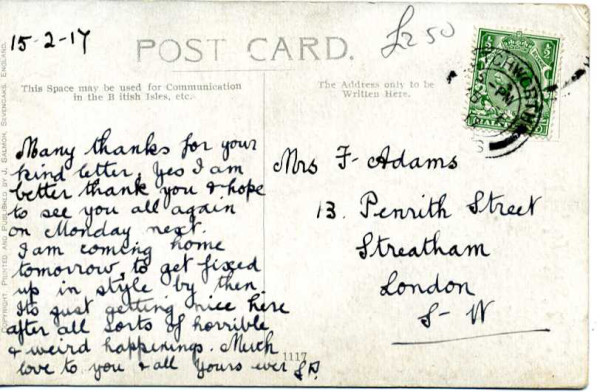 15-2-17
£2 50
POST CARD.
This Space may be used for Communication
in the B itish Isles, etc.
The Address only to be
Written Here.
Many thanks for your
kind letter, Yes I am
better thank you & hope
to see you all again
on Monday next.
I am coming home
tomorrow, to get fixed
up in style by then.
Its just getting nice here
after all sorts of horrible
& weird happenings. Much
love to you & all Yours ever
Mrs F. Adams
13. Penrith Street
Streatham
London
S-W
1117
COPYRIGHT. PRINTED AND PUBLISHED BY J. SALMON, SEVENOAKS, ENGLAND.